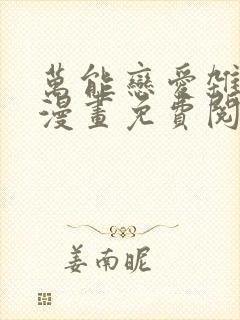 萬能戀愛雜
漫畫免費閱
姜南昵